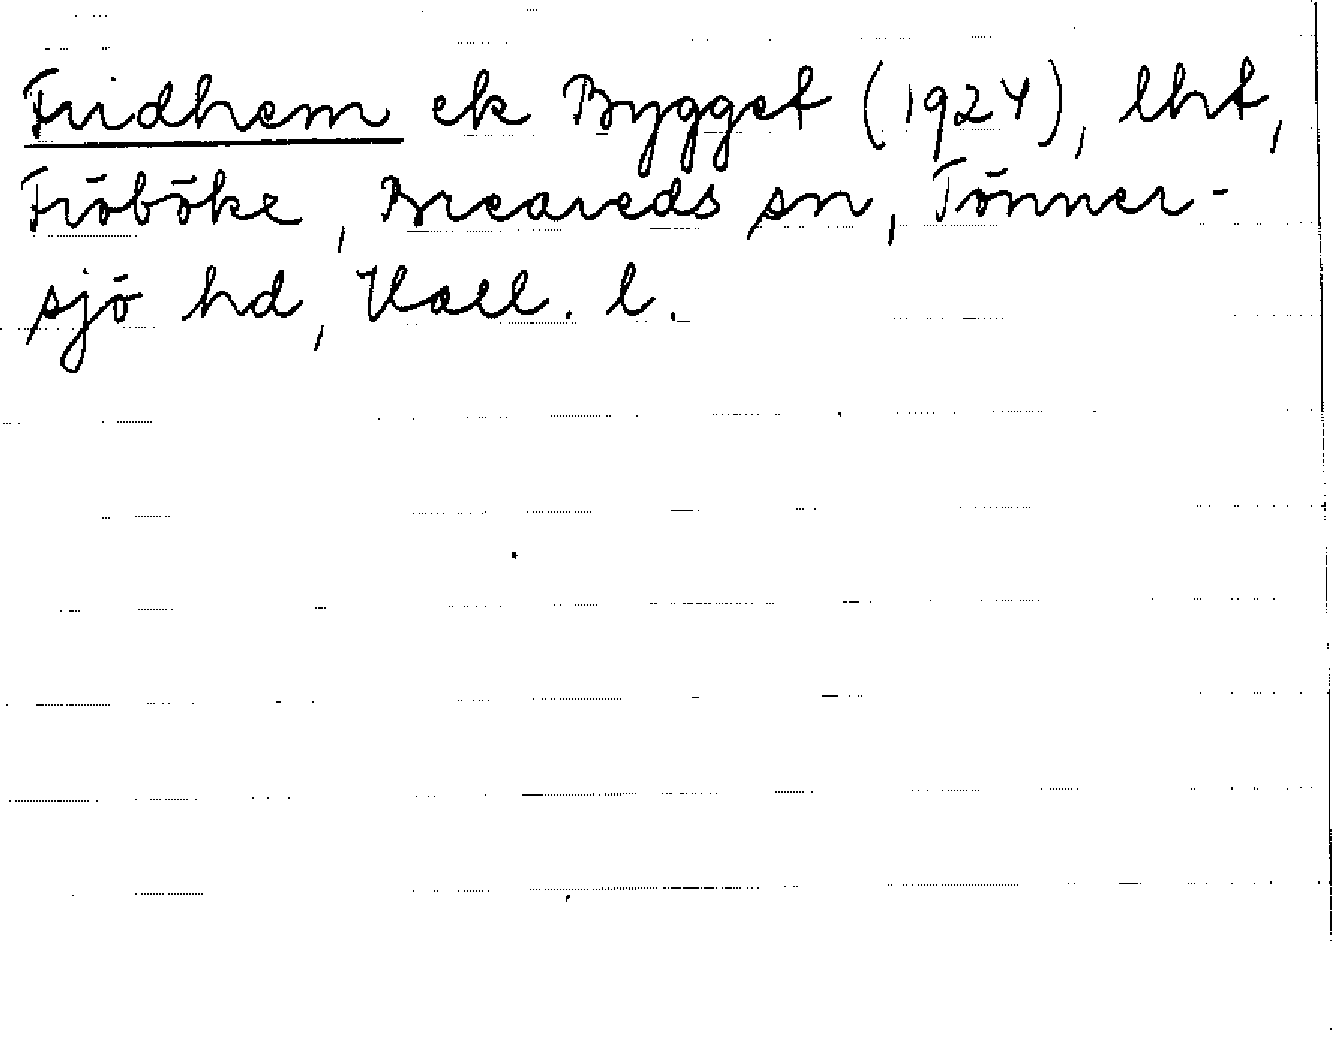 Fridhem ek Bygget (1924), lht,
Fröböke, Breareds sn, Tönner-
sjö hd, Hall. l.